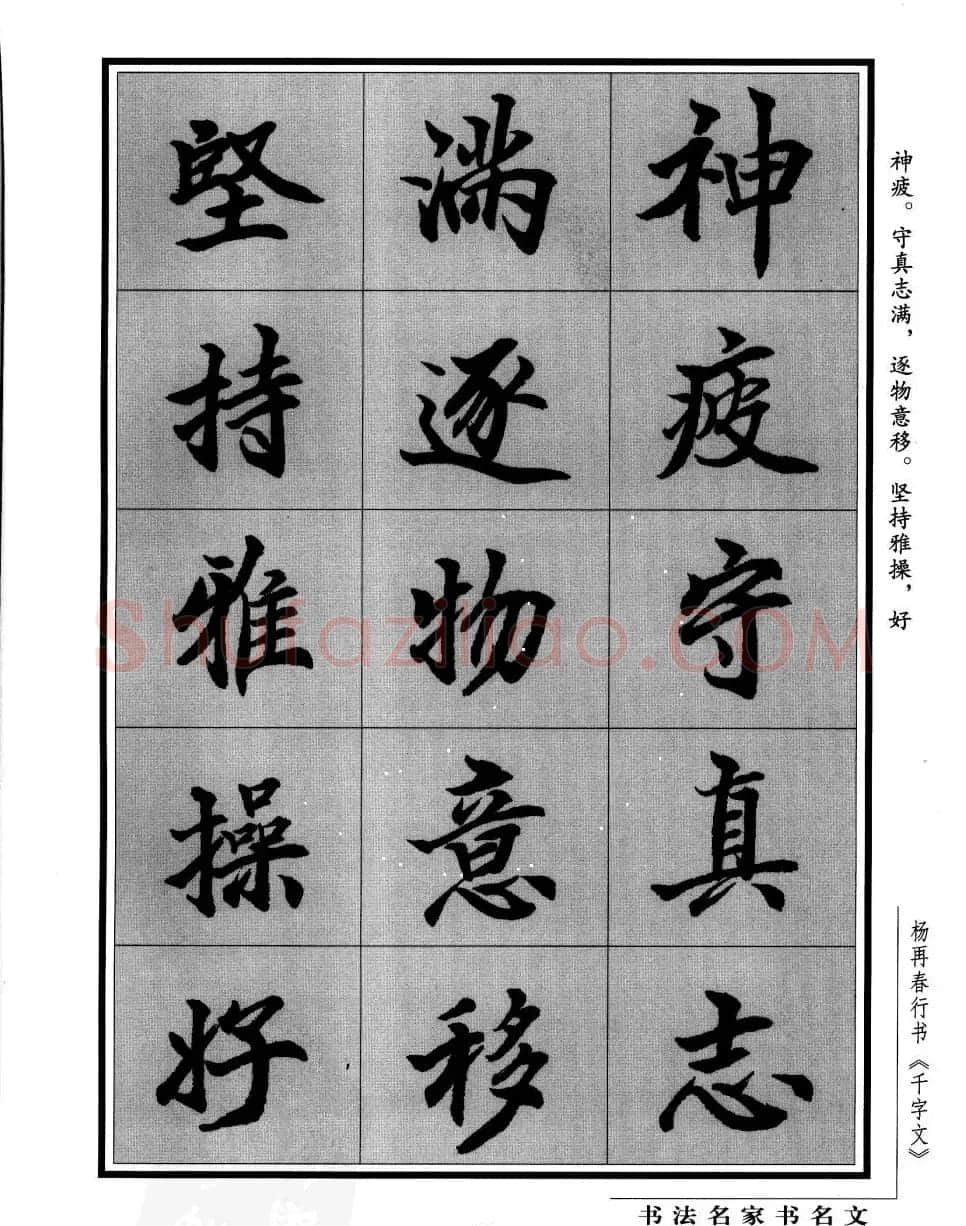 神疲守真志
满逐物意移
堅持雅操好
神疲。守真志满，逐物意移。坚持雅操，好
杨再春行书《千字文》
书法名家书名文
Shufaziliao.COM